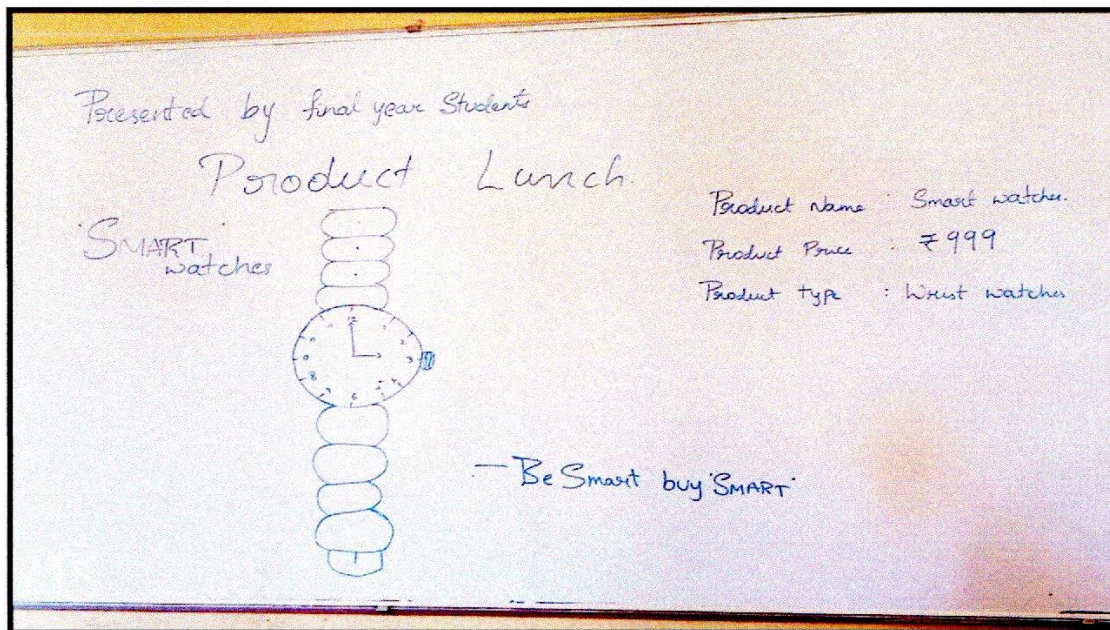 Presented by final year Students
Product Lunch
'SMART'
watches
Product Name : Smart watches.
Product Price : ₹999
Product type : Wrist watches
12
— Be Smart buy 'SMART'